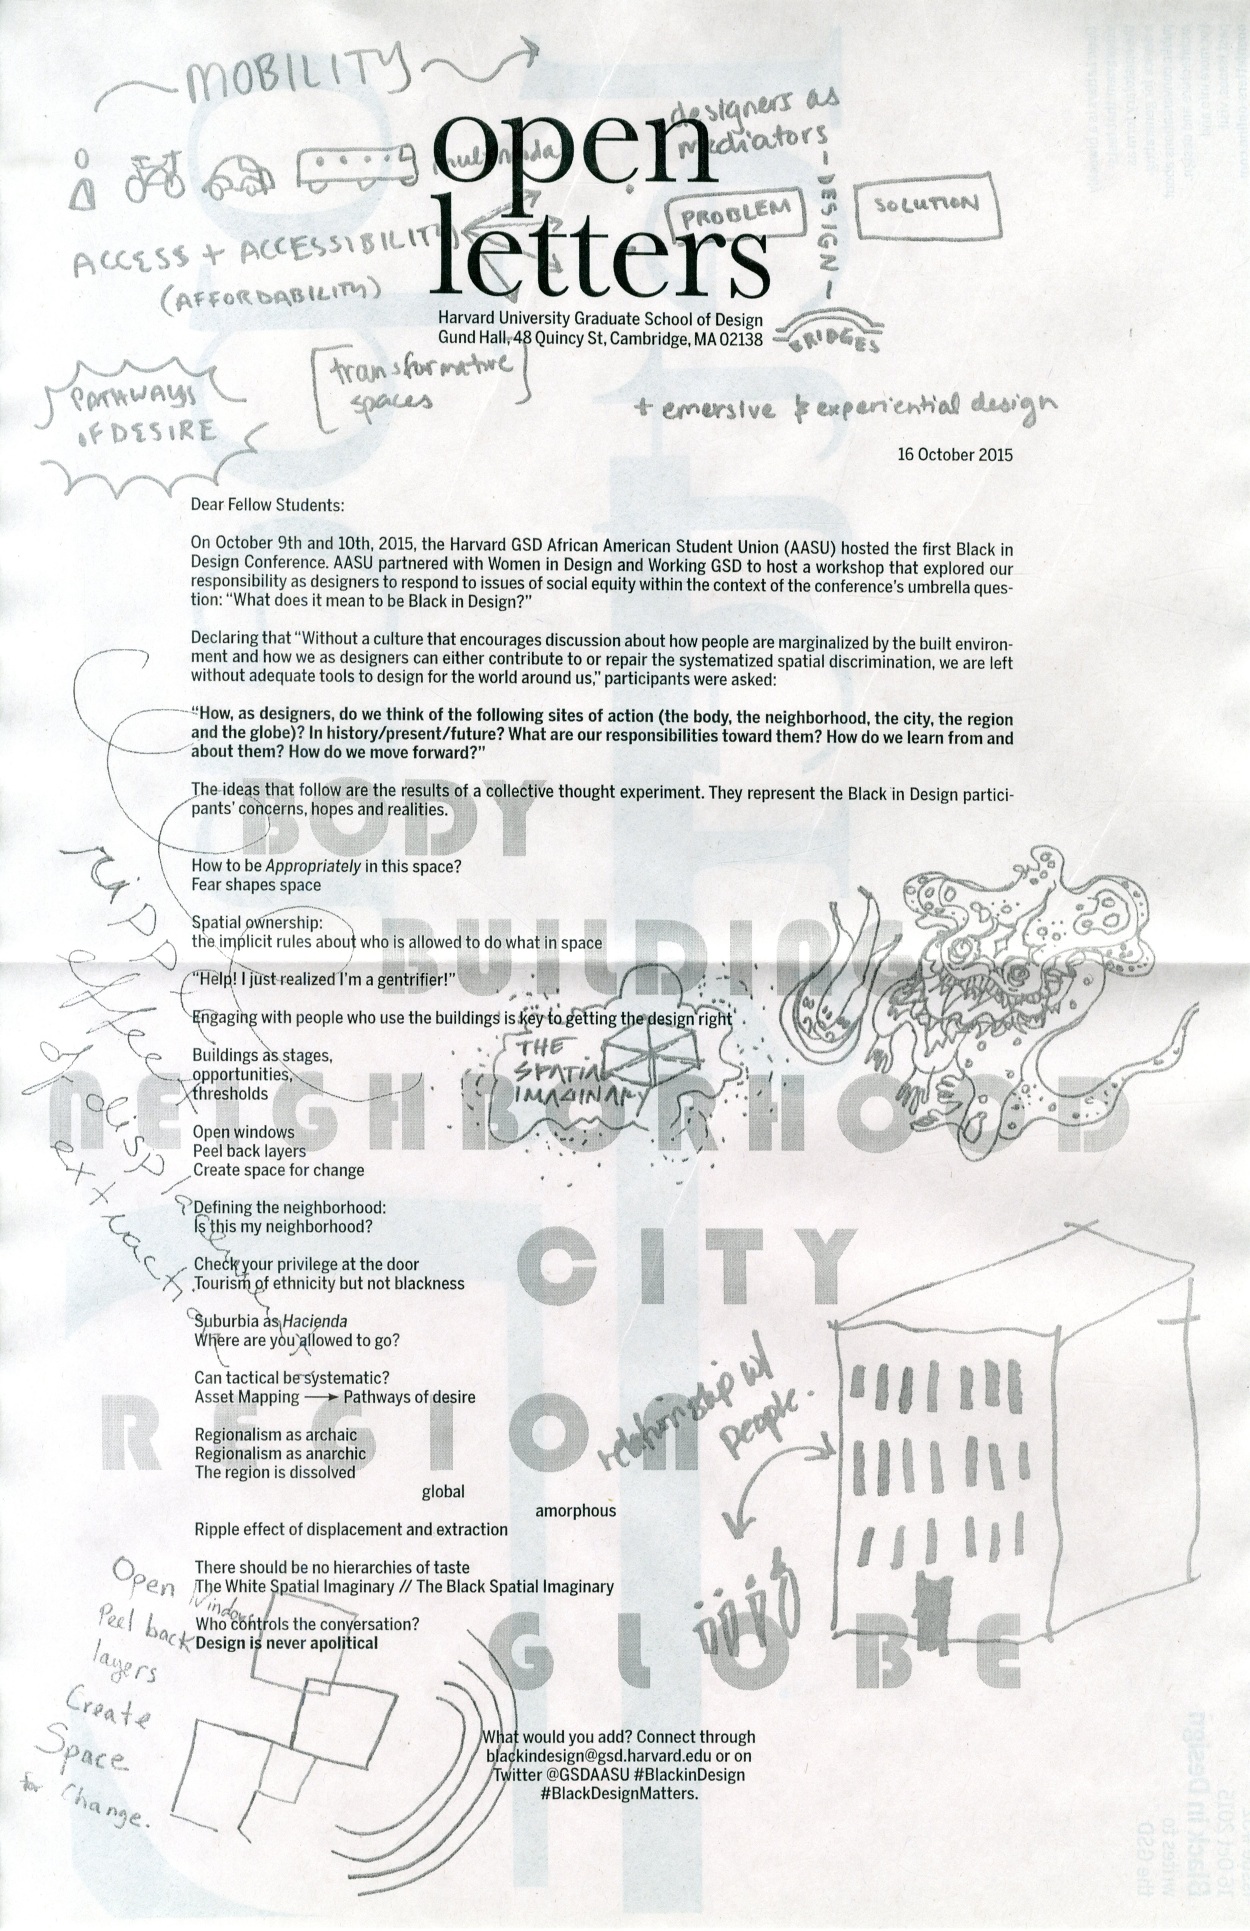 MOBILITY
designers as
mediators
open
letters
DESIGN
PROBLEM
SOLUTION
ACCESS + ACCESSIBILITY
(AFFORDABILITY)
Harvard University Graduate School of Design
Gund Hall, 48 Quincy St, Cambridge, MA 02138
BRIDGES
transformative
spaces
PATHWAYS
OF DESIRE
+ emersive & experiential design
16 October 2015
Dear Fellow Students:
On October 9th and 10th, 2015, the Harvard GSD African American Student Union (AASU) hosted the first Black in
Design Conference. AASU partnered with Women in Design and Working GSD to host a workshop that explored our
responsibility as designers to respond to issues of social equity within the context of the conference's umbrella ques-
tion: "What does it mean to be Black in Design?"
Declaring that "Without a culture that encourages discussion about how people are marginalized by the built environ-
ment and how we as designers can either contribute to or repair the systematized spatial discrimination, we are left
without adequate tools to design for the world around us," participants were asked:
"How, as designers, do we think of the following sites of action (the body, the neighborhood, the city, the region
and the globe)? In history/present/future? What are our responsibilities toward them? How do we learn from and
about them? How do we move forward?"
The ideas that follow are the results of a collective thought experiment. They represent the Black in Design partici-
pants' concerns, hopes and realities.
BODY
How to be Appropriately in this space?
Fear shapes space
Spatial ownership:
the implicit rules about who is allowed to do what in space
BUILDING
"Help! I just realized I'm a gentrifier!"
Engaging with people who use the buildings is key to getting the design right
THE
SPATIAL
IMAGINARY
Buildings as stages,
opportunities,
thresholds
NEIGHBORHOOD
Open windows
Peel back layers
Create space for change
Defining the neighborhood:
Is this my neighborhood?
Check your privilege at the door
Tourism of ethnicity but not blackness
CITY
Suburbia as Hacienda
Where are you allowed to go?
Can tactical be systematic?
Asset Mapping → Pathways of desire
REGION
relationship w/
people
Regionalism as archaic
Regionalism as anarchic
The region is dissolved
global
amorphous
Ripple effect of displacement and extraction
There should be no hierarchies of taste
The White Spatial Imaginary // The Black Spatial Imaginary
Who controls the conversation?
Design is never apolitical
GLOBE
Open windows
Peel back
layers
Create
Space
for Change.
What would you add? Connect through
blackindesign@gsd.harvard.edu or on
Twitter @GSDAASU #BlackinDesign
#BlackDesignMatters.
the GSD
writes to
Black in Design
16 Oct 2015